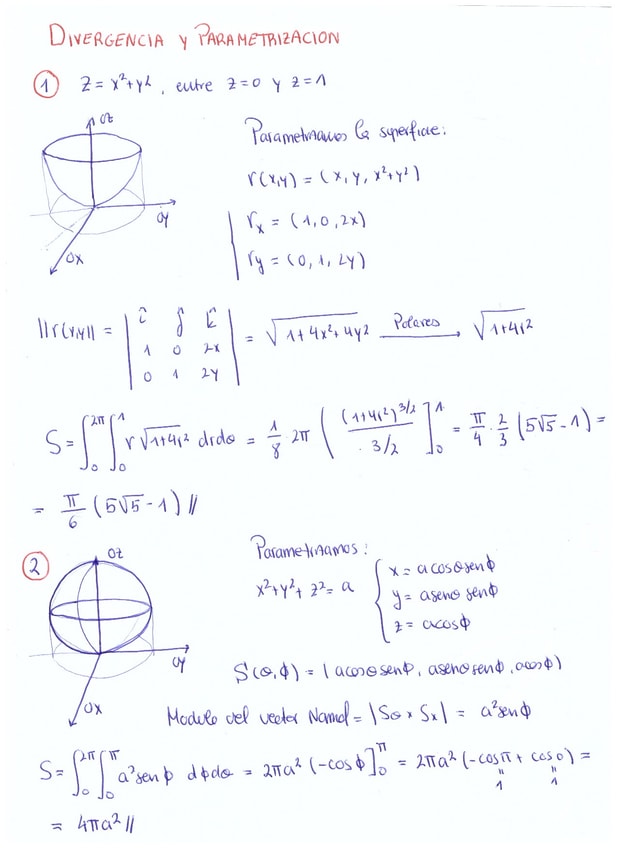 DIVERGENCIA Y PARAMETRIZACION
① Z = x²+y², entre z=0 y z=1
Oz
Oy
Ox
Parametrizamos la superficie:
r(x,y) = (x, y, x²+y²)
r_x = (1,0,2x)
r_y = (0,1,2y)
||r(x,y)|| = | î ĵ k̂ | = √(1+4x²+4y²) Polares → √(1+4r²)
1 0 2x
0 1 2y
S = ∫₀^2π ∫₀^1 r √(1+4r²) dr dθ = 1/8 · 2π ( (1+4r²)^3/2 / · 3/2 ]₀^1 = π/4 · 2/3 (5√5 - 1) =
= π/6 (5√5 - 1) //
② Oz
Oy
Ox
Parametrizamos:
x²+y²+z² = a
x = a cosθ senϕ
y = a senθ senϕ
z = a cosϕ
S(θ,ϕ) = (a cosθ senϕ, a senθ senϕ, a cosϕ)
Modulo del vector Normal = |Sθ × Sx| = a² senϕ
S = ∫₀^2π ∫₀^π a² senϕ dϕ dθ = 2πa² (-cosϕ]₀^π = 2πa² (-cosπ + cos0) =
" "
1 1
= 4πa² //